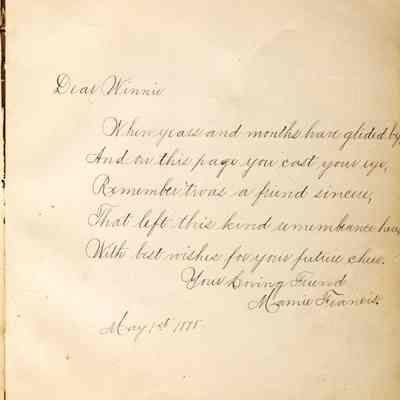 Dear Winnie
When years and months have glided by,
And on this page you cast your eye,
Remember 'twas a friend sincere,
That left this kind remembrance here,
With best wishes for your future cheer.
Your Loving Friend
Mamie Francis.
May 1st